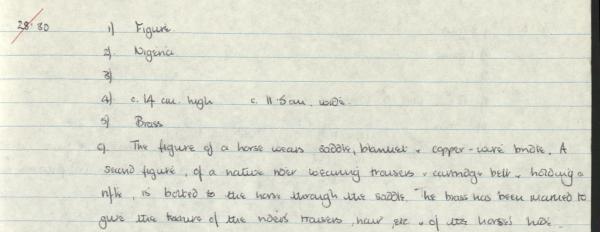 28.80 1) Figure
2) Nigeria
3)
4) c. 14 cm. high c. 11.5 cm. wide.
5) Brass
9. The figure of a horse wears saddle, blanket + copper-wire bridle. A
second figure, of a native rider wearing trousers + cartridge belt + holding a
rifle, is bolted to the horse through the saddle. The brass has been marked to
give the texture of the rider's trousers, hair, etc. + of the horse's hide.